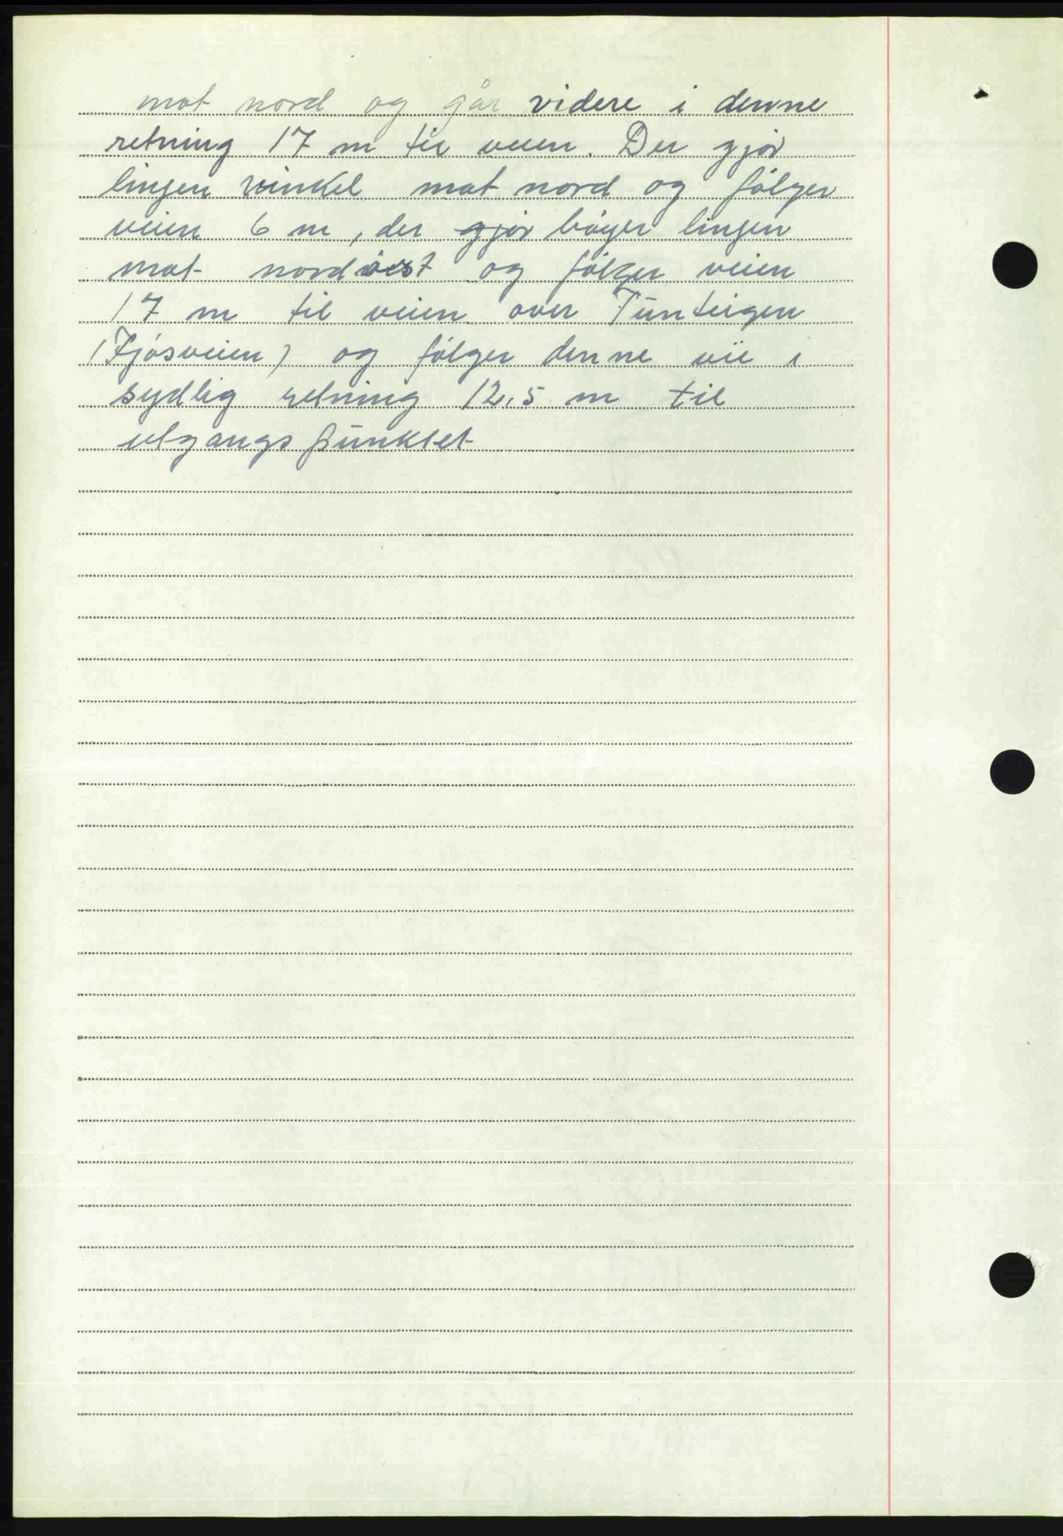 mot nord og går videre i denne
retning 17 m til veien. Der gjør
linjen vinkel mot nord og følger
veien 6 m, der gjør bøyer linjen
mot nordøst og følger veien
17 m til veien over Tunteigen
(Fjøsveien) og følger denne vei i
sydlig retning 12,5 m til
utgangspunktet